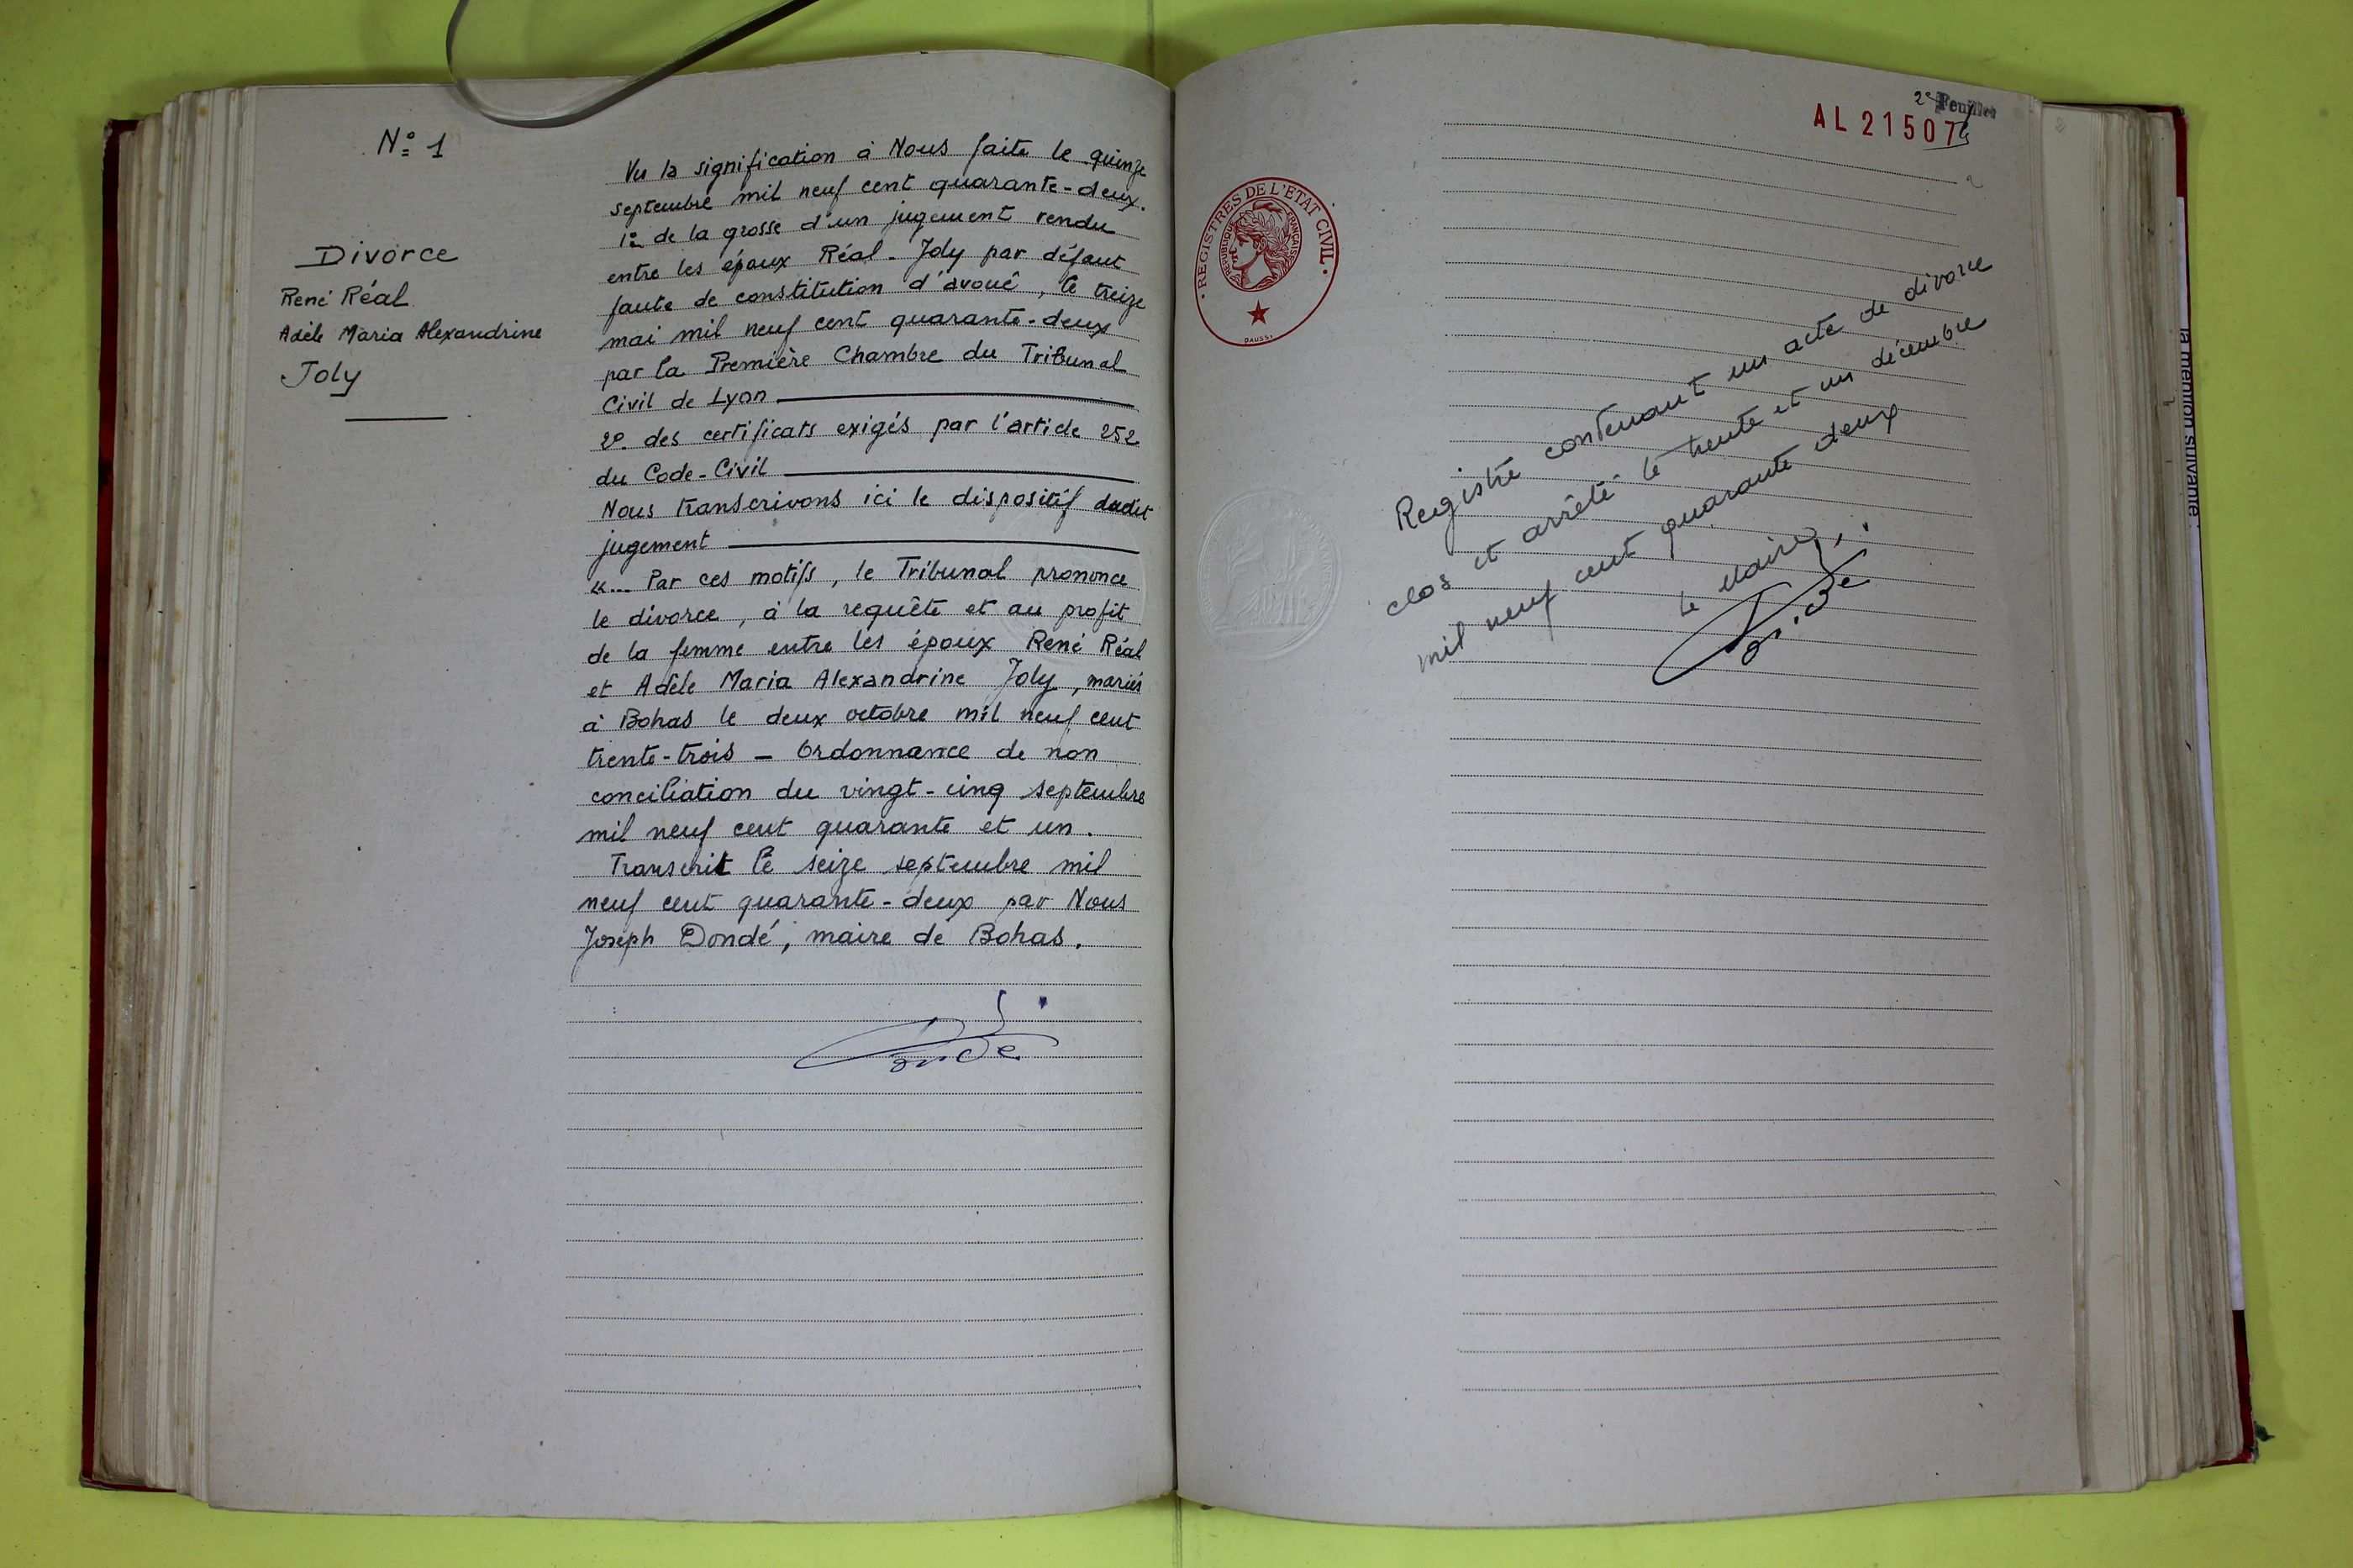 N° 1
Divorce
René Réal
Adèle Maria Alexandrine
Joly
Vu la signification à Nous faite le quinze
septembre mil neuf cent quarante-deux.
1° de la grosse d'un jugement rendu
entre les époux Réal - Joly par défaut
faute de constitution d'avoué, le treize
mai mil neuf cent quarante-deux
par la Première Chambre du Tribunal
Civil de Lyon
2° des certificats exigés par l'article 252
du Code-Civil
Nous transcrivons ici le dispositif dudit
jugement
«... Par ces motifs, le Tribunal prononce
le divorce, à la requête et au profit
de la femme entre les époux René Réal
et Adèle Maria Alexandrine Joly, mariés
à Bohas le deux octobre mil neuf cent
trente-trois - Ordonnance de non
conciliation du vingt-cinq septembre
mil neuf cent quarante et un.
Transcrit le seize septembre mil
neuf cent quarante-deux par Nous
Joseph Dondé, maire de Bohas.
Dondé
2e Feuillet
AL 21507
REGISTRES DE L'ETAT CIVIL
REPUBLIQUE FRANÇAISE
DAUSSY
Registre contenant un acte de divorce
clos et arrêté le trente et un décembre
mil neuf cent quarante deux
le Maire,
Dondé
la mention suivante :